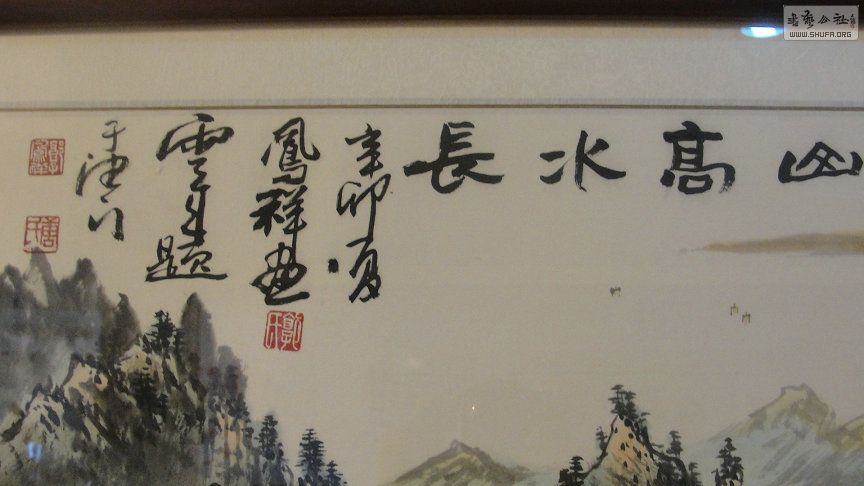 山高水長
辛卯夏
鳳祥画
雲生題
于津门
郭氏
書藝公社
WWW.SHUFA.ORG